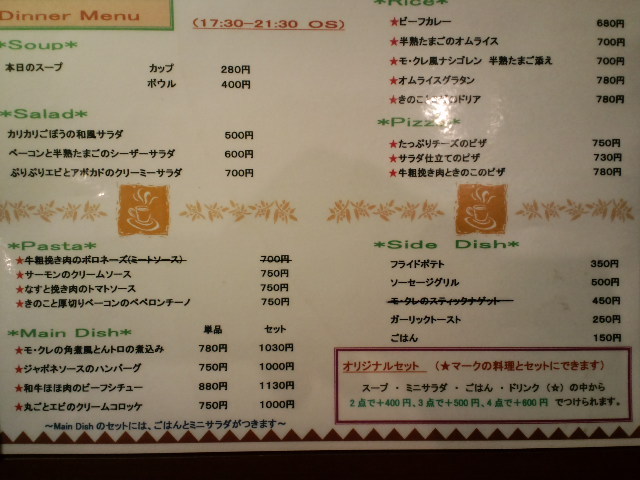 Dinner Menu
(17:30-21:30 OS)
*Soup*
本日のスープ カップ 280円
ボウル 400円
*Salad*
カリカリごぼうの和風サラダ 500円
ベーコンと半熟たまごのシーザーサラダ 600円
ぷりぷりエビとアボカドのクリーミーサラダ 700円
*Pasta*
★牛粗挽き肉のボロネーズ(ミートソース) 700円
★サーモンのクリームソース 750円
★なすと挽き肉のトマトソース 750円
★きのこと厚切りベーコンのペペロンチーノ 750円
*Main Dish* 単品 セット
★モ・クレの角煮風とんトロの煮込み 780円 1030円
★ジャポネソースのハンバーグ 750円 1000円
★和牛ほほ肉のビーフシチュー 880円 1130円
★丸ごとエビのクリームコロッケ 750円 1000円
～Main Dish のセットには、ごはんとミニサラダがつきます～
*Rice*
★ビーフカレー 680円
★半熟たまごのオムライス 700円
★モ・クレ風ナシゴレン 半熟たまご添え 700円
★オムライスグラタン 780円
★きのこ のドリア 780円
*Pizza*
★たっぷりチーズのピザ 750円
★サラダ仕立てのピザ 730円
★牛粗挽き肉ときのこのピザ 780円
*Side Dish*
フライドポテト 350円
ソーセージグリル 500円
モ・クレのスティックナゲット 450円
ガーリックトースト 250円
ごはん 150円
オリジナルセット (★マークの料理とセットにできます)
スープ ・ ミニサラダ ・ ごはん ・ ドリンク (☆) の中から
2点で+400円、3点で+500円、4点で+600円 でつけられます。